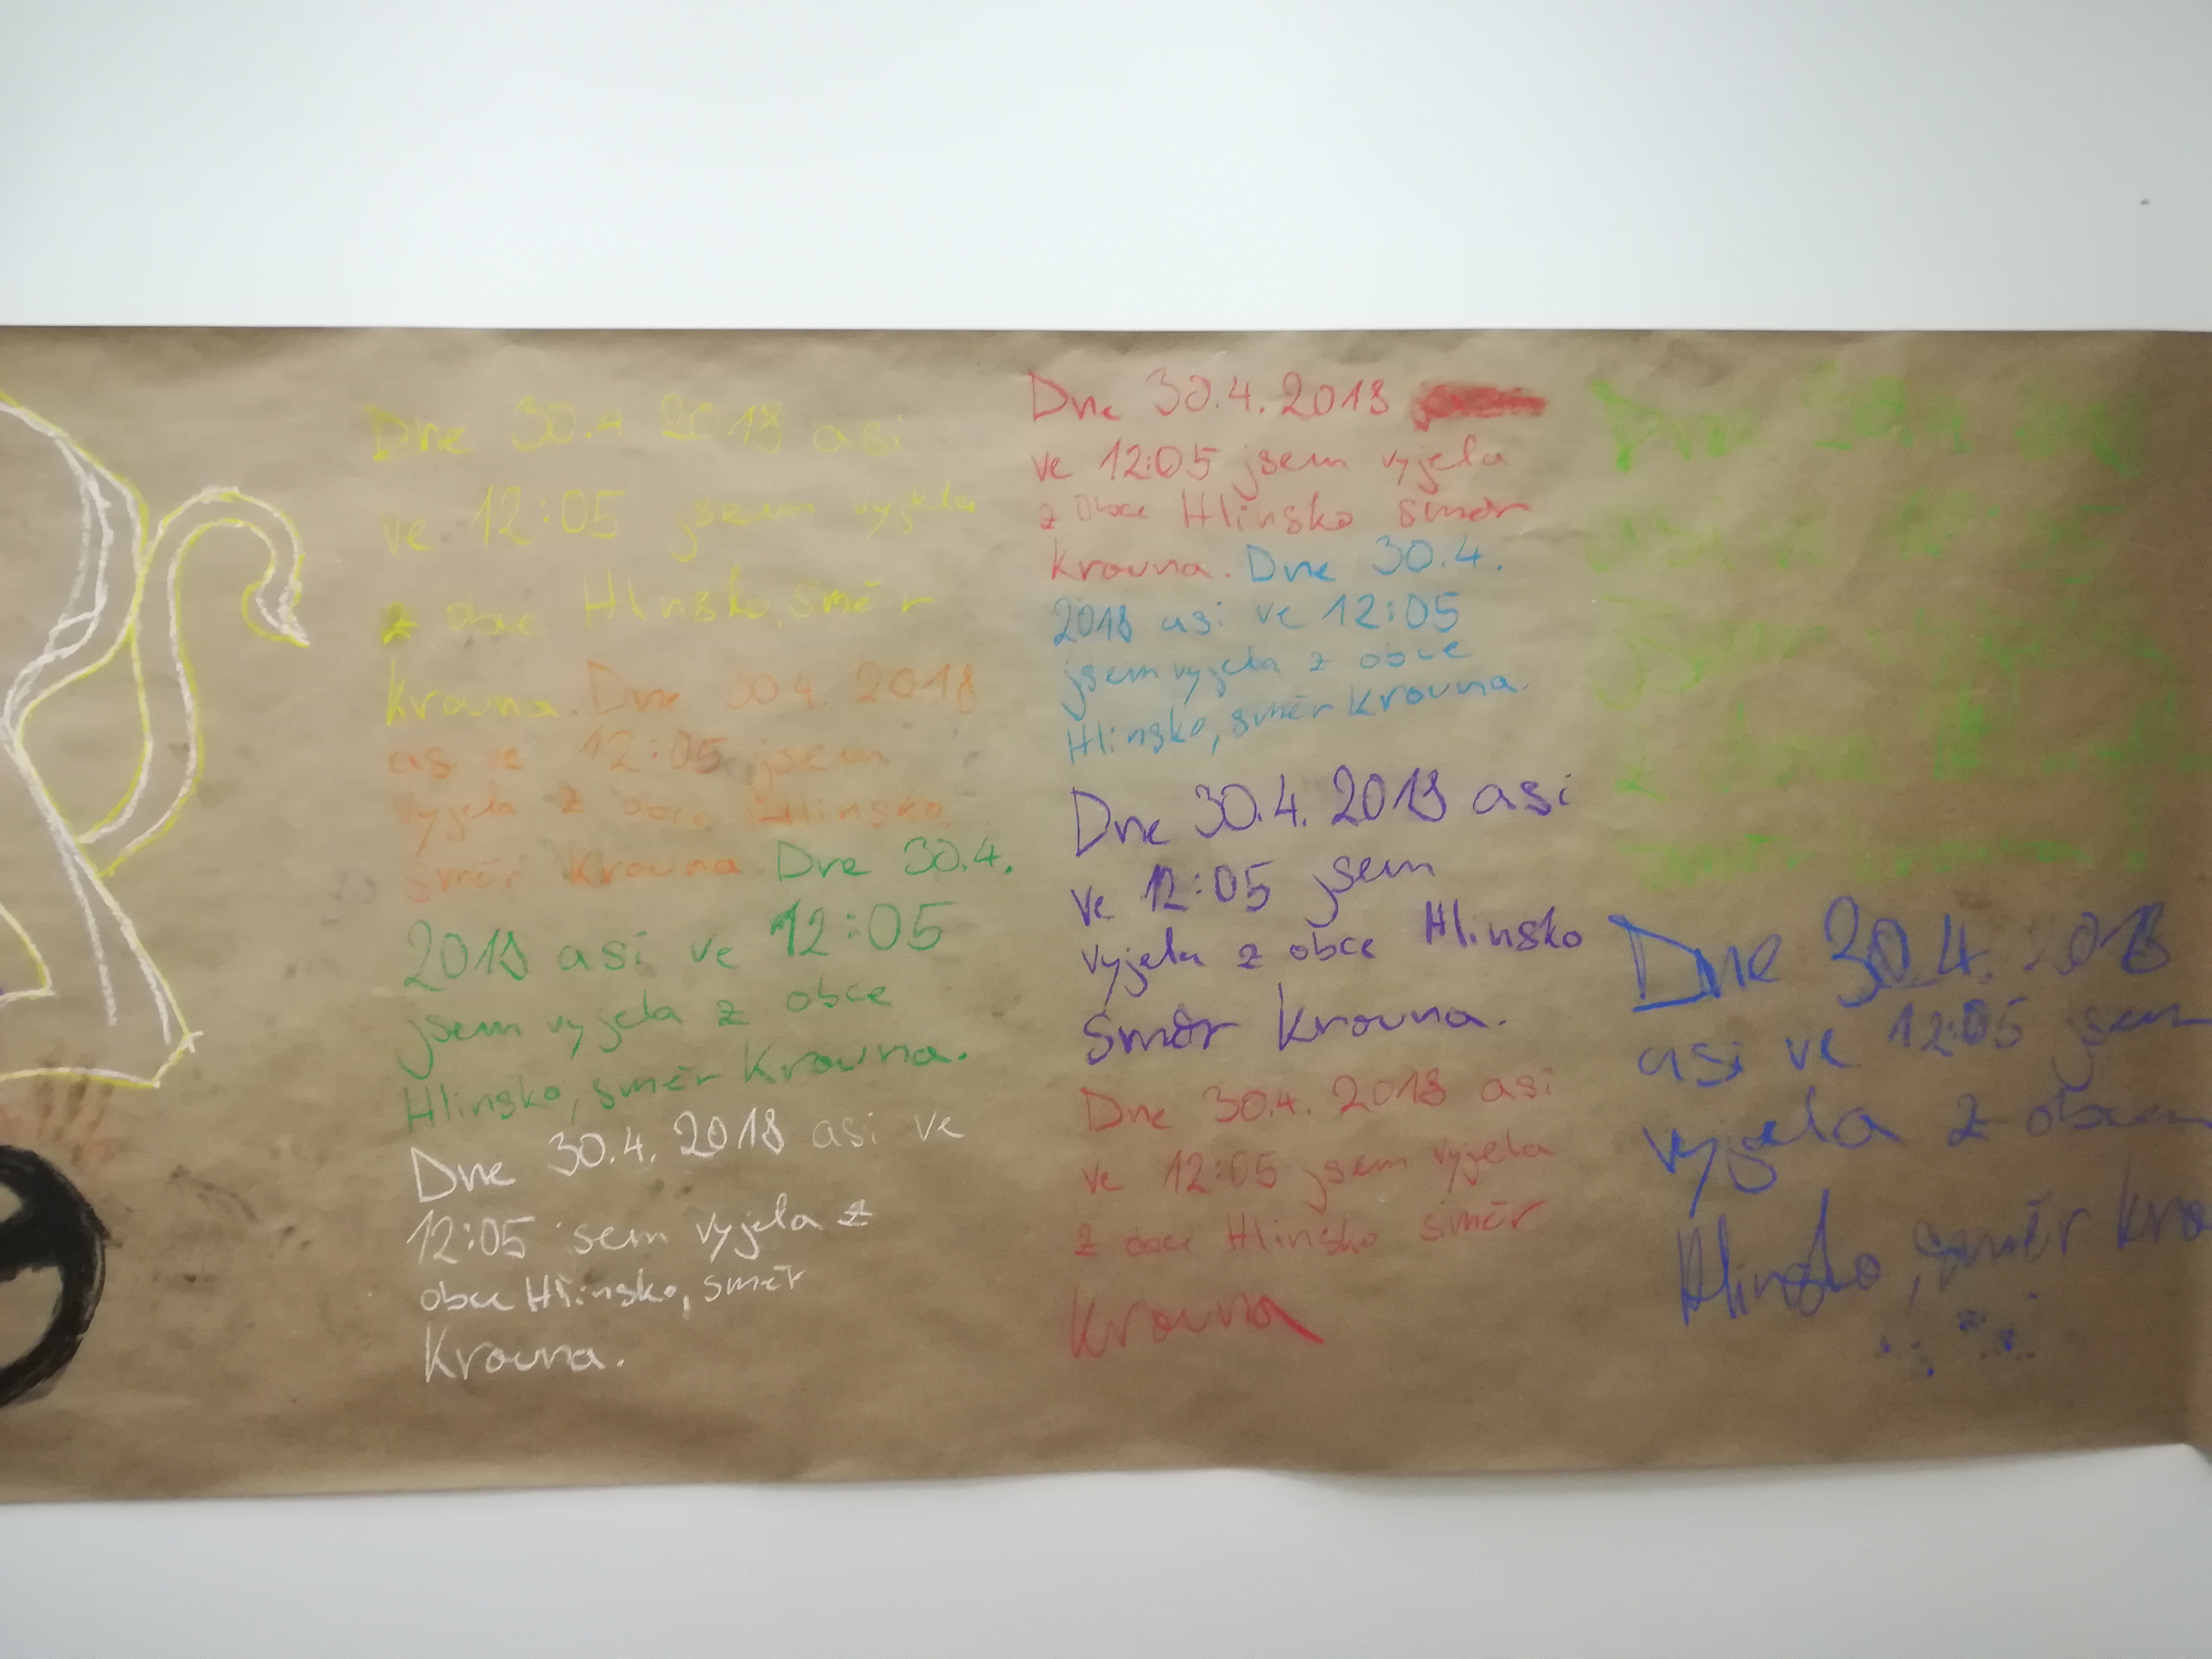 Dne 30.4 2018 asi
ve 12:05 jsem vyjela
z obce Hlinsko, směr
Krouna. Dne 30.4. 2018
asi ve 12:05 jsem
vyjela z obce Hlinsko,
směr Krouna. Dne 30.4.
2018 asi ve 12:05
jsem vyjela z obce
Hlinsko, směr Krouna.
Dne 30.4. 2018 asi ve
12:05 jsem vyjela z
obce Hlinsko, směr
Krouna.
Dne 30.4. 2018
ve 12:05 jsem vyjela
z obce Hlinsko směr
Krouna. Dne 30.4.
2018 asi ve 12:05
jsem vyjela z obce
Hlinsko, směr Krouna.
Dne 30.4. 2018 asi
ve 12:05 jsem
vyjela z obce Hlinsko
směr Krouna.
Dne 30.4. 2018 asi
ve 12:05 jsem vyjela
z obce Hlinsko směr
Krouna
Dne 30.4
směr
Dne 30.4. 2018
asi ve 12:05 jsem
vyjela z
Hlinsko, směr Kro